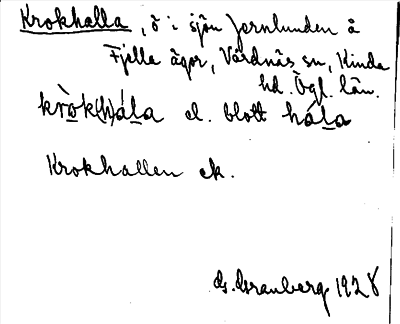 Krokhalla, ö i sjön Jernlunden å
Fjella ägor, Värdnäs sn, Kinda
hd. Ögl. län.
kròk(h)ála el. blott hála
Krokhallen ek.
G. Granberg 1928